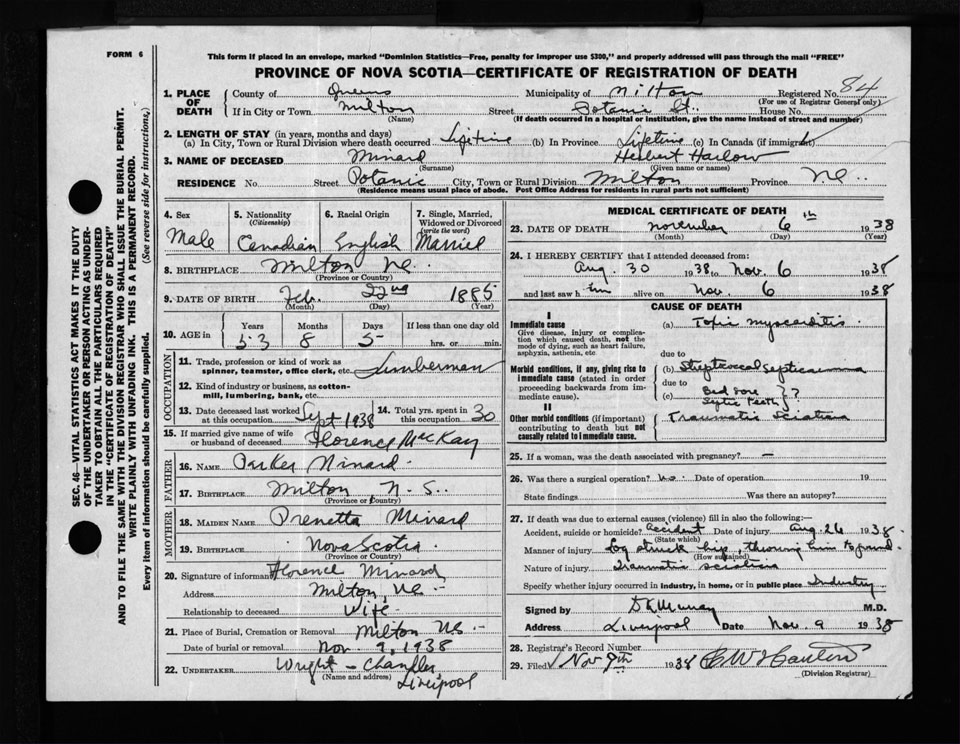 FORM 6
This form if placed in an envelope, marked "Dominion Statistics—Free, penalty for improper use $300," and properly addressed will pass through the mail "FREE"
PROVINCE OF NOVA SCOTIA—CERTIFICATE OF REGISTRATION OF DEATH
SEC. 46—VITAL STATISTICS ACT MAKES IT THE DUTY
OF THE UNDERTAKER OR PERSON ACTING AS UNDER-
TAKER TO OBTAIN ALL THE PARTICULARS REQUIRED
IN THE "CERTIFICATE OF REGISTRATION OF DEATH"
AND TO FILE THE SAME WITH THE DIVISION REGISTRAR WHO SHALL ISSUE THE BURIAL PERMIT.
WRITE PLAINLY WITH UNFADING INK. THIS IS A PERMANENT RECORD.
Every item of information should be carefully supplied. (See reverse side for instructions.)
1. PLACE OF DEATH
County of Queens Municipality of Milton Registered No. 84
(For use of Registrar General only)
If in City or Town Milton Street Botanic St. House No.
(Name) (If death occurred in a hospital or institution, give the name instead of street and number)
2. LENGTH OF STAY (in years, months and days)
(a) In City, Town or Rural Division where death occurred Lifetime (b) In Province Lifetime (c) In Canada (if immigrant)
3. NAME OF DECEASED Minard Herbert Harlow
(Surname) (Given name or names)
RESIDENCE No. Street Botanic City, Town or Rural Division Milton Province N.S.
(Residence means usual place of abode. Post Office Address for residents in rural parts not sufficient)
4. Sex Male
5. Nationality (Citizenship) Canadian
6. Racial Origin English
7. Single, Married, Widowed or Divorced (write the word) Married
8. BIRTHPLACE Milton N.S.
(Province or Country)
9. DATE OF BIRTH Feb. 22nd 1885
(Month) (Day) (Year)
10. AGE in Years 53 Months 8 Days 5 If less than one day old hrs. or min.
OCCUPATION
11. Trade, profession or kind of work as spinner, teamster, office clerk, etc. Lumberman
12. Kind of industry or business, as cotton-mill, lumbering, bank, etc.
13. Date deceased last worked at this occupation Sept 1938
14. Total yrs. spent in this occupation 30
15. If married give name of wife or husband of deceased Florence MacKay
FATHER
16. NAME Parker Minard
17. BIRTHPLACE Milton, N.S.
(Province or Country)
MOTHER
18. MAIDEN NAME Prenetta Minard
19. BIRTHPLACE Nova Scotia
(Province or Country)
20. Signature of informant Florence Minard
Address Milton, N.S.
Relationship to deceased Wife
21. Place of Burial, Cremation or Removal Milton N.S.
Date of burial or removal Nov. 9, 1938
22. UNDERTAKER Wright - Chandler
(Name and address) Liverpool
MEDICAL CERTIFICATE OF DEATH
23. DATE OF DEATH November 6th 1938
(Month) (Day) (Year)
24. I HEREBY CERTIFY that I attended deceased from:
Aug. 30 1938 to Nov. 6 1938
and last saw him alive on Nov. 6 1938
CAUSE OF DEATH
I
Immediate cause
Give disease, injury or complication which caused death, not the mode of dying, such as heart failure, asphyxia, asthenia, etc
(a) Toxic myocarditis
due to
Morbid conditions, if any, giving rise to immediate cause (stated in order proceeding backwards from immediate cause).
(b) Streptococcal Septicaemia
due to
(c) Bed sore ?
Septic teeth ?
II
Other morbid conditions (if important) contributing to death but not causally related to immediate cause.
Traumatic sciatica
25. If a woman, was the death associated with pregnancy? —
26. Was there a surgical operation? no. Date of operation 19
State findings Was there an autopsy?
27. If death was due to external causes (violence) fill in also the following:—
Accident, suicide or homicide? Accident Date of injury Aug. 26 1938.
(State which)
Manner of injury Log struck hip, throwing him to ground.
(How sustained)
Nature of injury Traumatic sciatica
Specify whether injury occurred in industry, in home, or in public place Industry
Signed by M.D.
Address Liverpool Date Nov. 9 1938
28. Registrar's Record Number
29. Filed Nov 9th 1938
(Division Registrar)